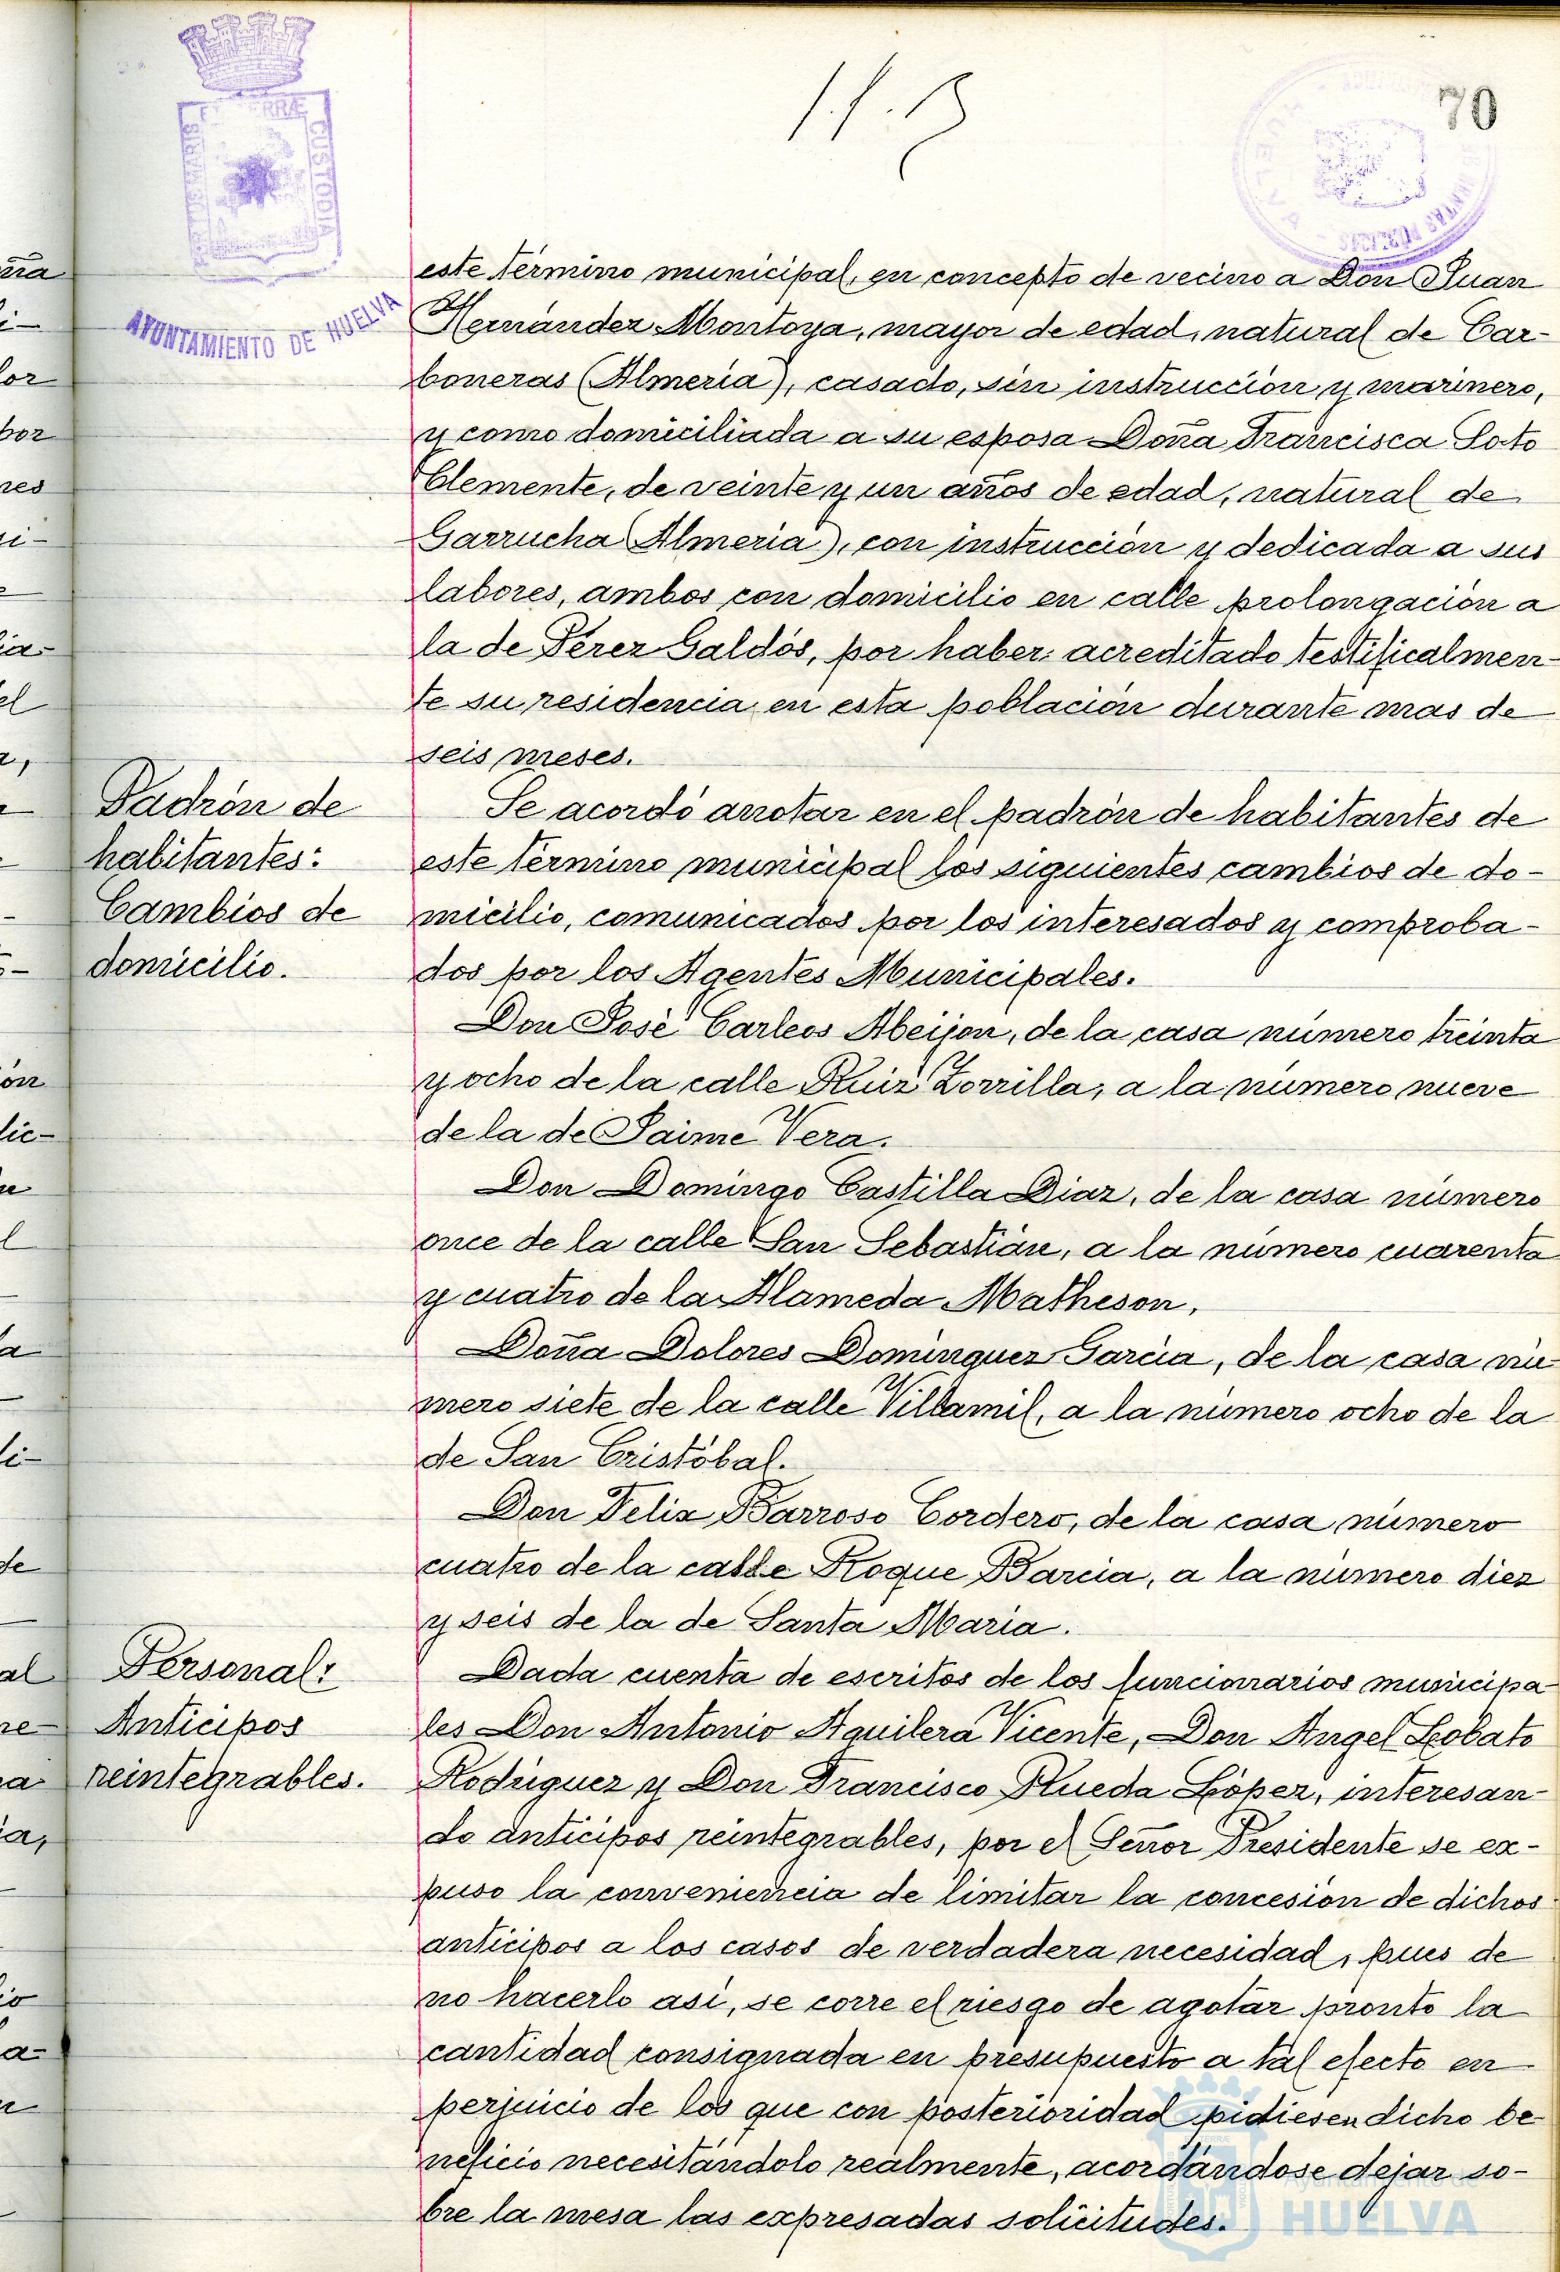 70
AYUNTAMIENTO DE HUELVA
CUSTODIA
este término municipal, en concepto de vecino a Don Juan
Hernández Montoya, mayor de edad, natural de Car-
boneras (Almería), casado, sin instrucción y marinero,
y como domiciliada a su esposa Doña Francisca Soto
Clemente, de veinte y un años de edad, natural de
Garrucha (Almería), con instrucción y dedicada a sus
labores, ambos con domicilio en calle prolongación a
la de Pérez Galdós, por haber acreditado testificalmen-
te su residencia en esta población durante mas de
seis meses.
Padrón de
habitantes:
Cambios de
domicilio.
Se acordó anotar en el padrón de habitantes de
este término municipal los siguientes cambios de do-
micilio, comunicados por los interesados y comproba-
dos por los Agentes Municipales.
Don José Carleos Abeijon, de la casa número treinta
y ocho de la calle Ruiz Zorrilla, a la número nueve
de la de Jaime Vera.
Don Domingo Castilla Diaz, de la casa número
once de la calle San Sebastián, a la número cuarenta
y cuatro de la Alameda Matheson.
Doña Dolores Dominguez García, de la casa nú-
mero siete de la calle Villamil, a la número ocho de la
de San Cristóbal.
Don Felix Barroso Cordero, de la casa número
cuatro de la calle Roque Barcia, a la número diez
y seis de la de Santa María.
Personal:
Anticipos
reintegrables.
Dada cuenta de escritos de los funcionarios municipa-
les Don Antonio Aguilera Vicente, Don Angel Lobato
Rodriguez y Don Francisco Rueda López, interesan-
do anticipos reintegrables, por el Señor Presidente se ex-
puso la conveniencia de limitar la concesión de dichos
anticipos a los casos de verdadera necesidad, pues de
no hacerlo así, se corre el riesgo de agotar pronto la
cantidad consignada en presupuesto a tal efecto en
perjuicio de los que con posterioridad pidiesen dicho be-
neficio necesitándolo realmente, acordándose dejar so-
bre la mesa las expresadas solicitudes.
Ayuntamiento de
HUELVA